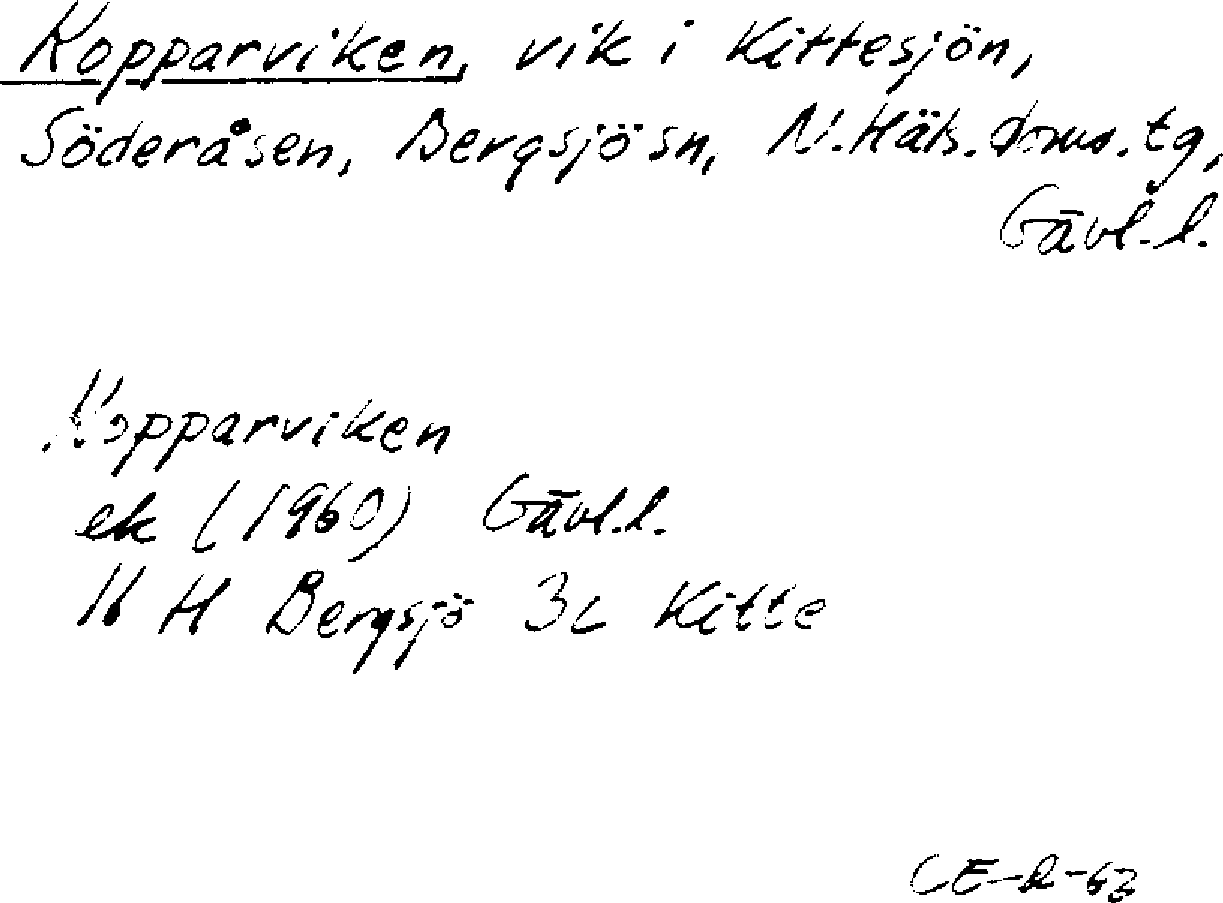 Kopparviken, vik i Kittesjön,
Söderåsen, Bergsjö sn, N. Häls. doms. tg,
Gävl. l.
Kopparviken
ek (1960) Gävl. l.
16 H Bergsjö 3c Kitte
CE-R-63